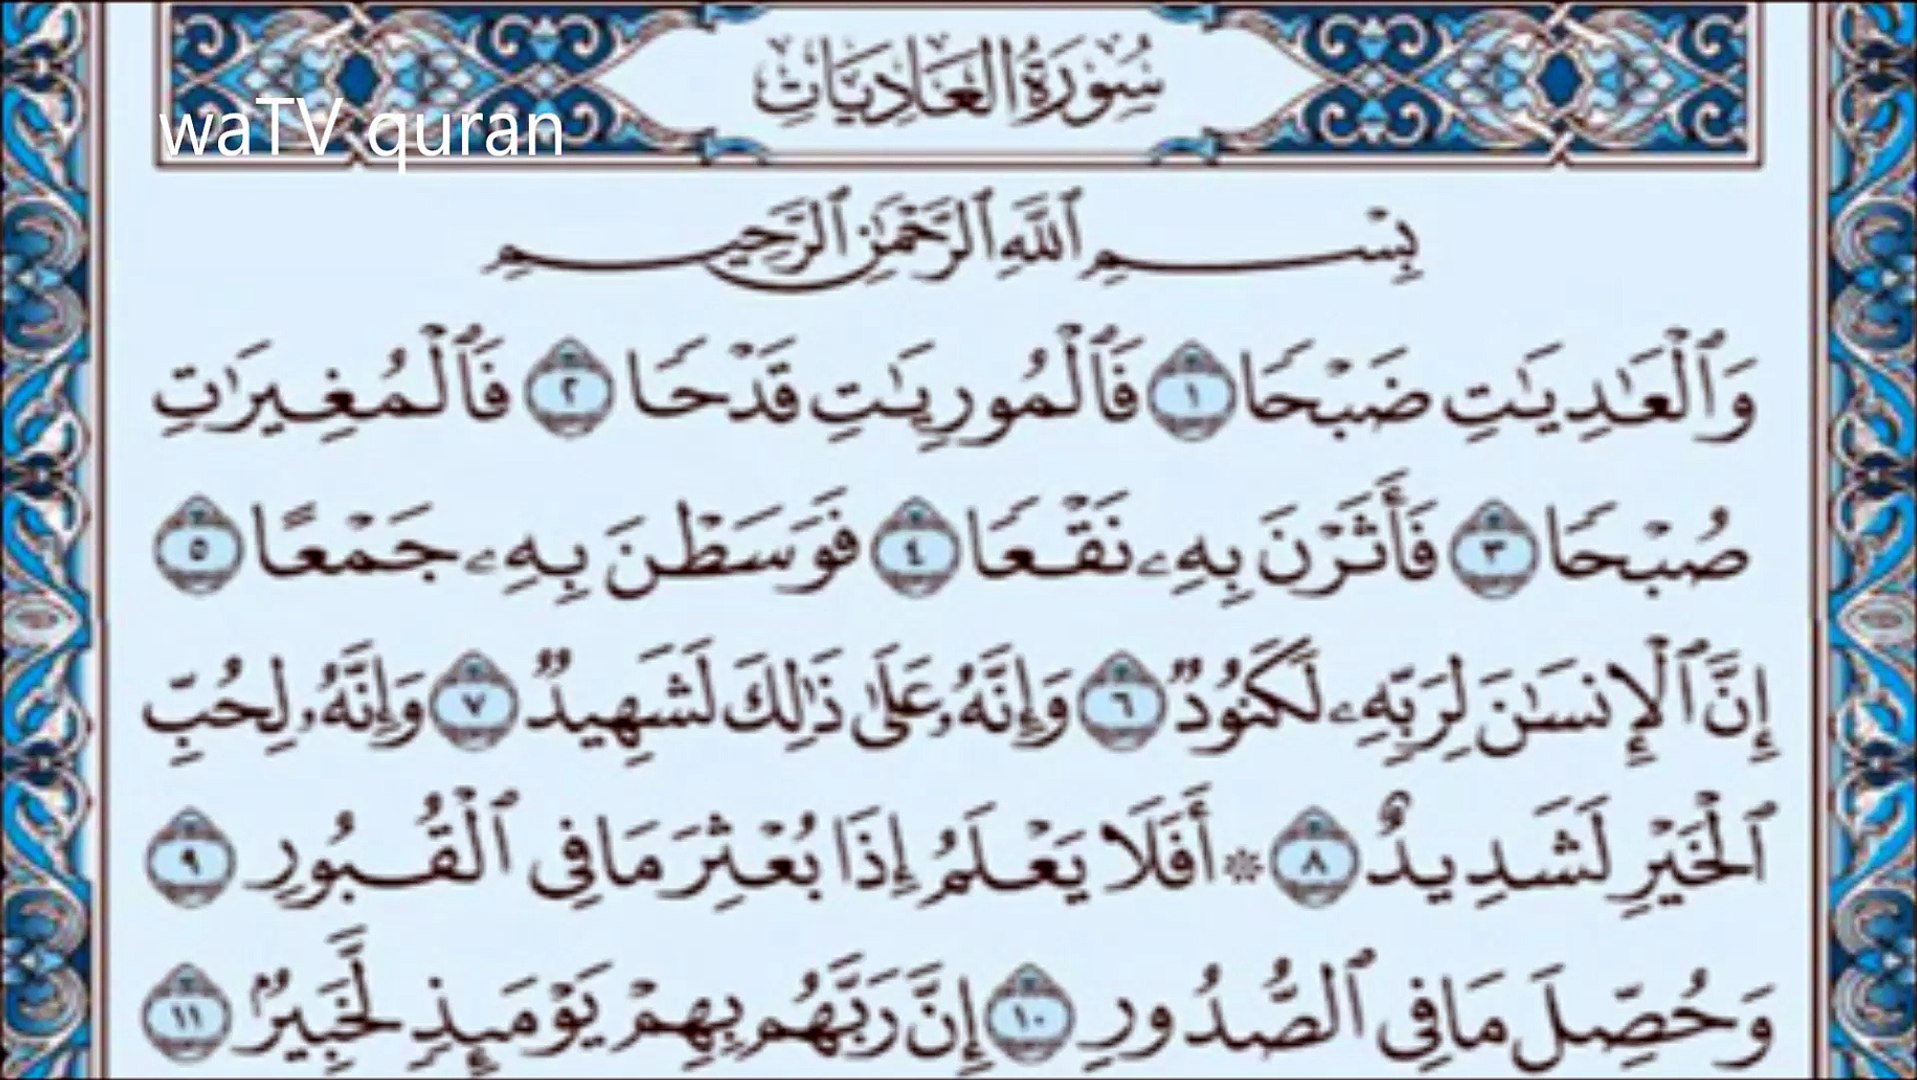 سُورَةُ العَادِيَاتِ
waTV quran
بِسْمِ ٱللَّهِ ٱلرَّحْمَٰنِ ٱلرَّحِيمِ
وَٱلْعَٰدِيَٰتِ ضَبْحًا ١ فَٱلْمُورِيَٰتِ قَدْحًا ٢ فَٱلْمُغِيرَٰتِ
صُبْحًا ٣ فَأَثَرْنَ بِهِۦ نَقْعًا ٤ فَوَسَطْنَ بِهِۦ جَمْعًا ٥
إِنَّ ٱلْإِنسَٰنَ لِرَبِّهِۦ لَكَنُودٌ ٦ وَإِنَّهُۥ عَلَىٰ ذَٰلِكَ لَشَهِيدٌ ٧ وَإِنَّهُۥ لِحُبِّ
ٱلْخَيْرِ لَشَدِيدٌ ٨ ۞ أَفَلَا يَعْلَمُ إِذَا بُعْثِرَ مَا فِى ٱلْقُبُورِ ٩
وَحُصِّلَ مَا فِى ٱلصُّدُورِ ١٠ إِنَّ رَبَّهُم بِهِمْ يَوْمَئِذٍ لَّخَبِيرٌۢ ١١